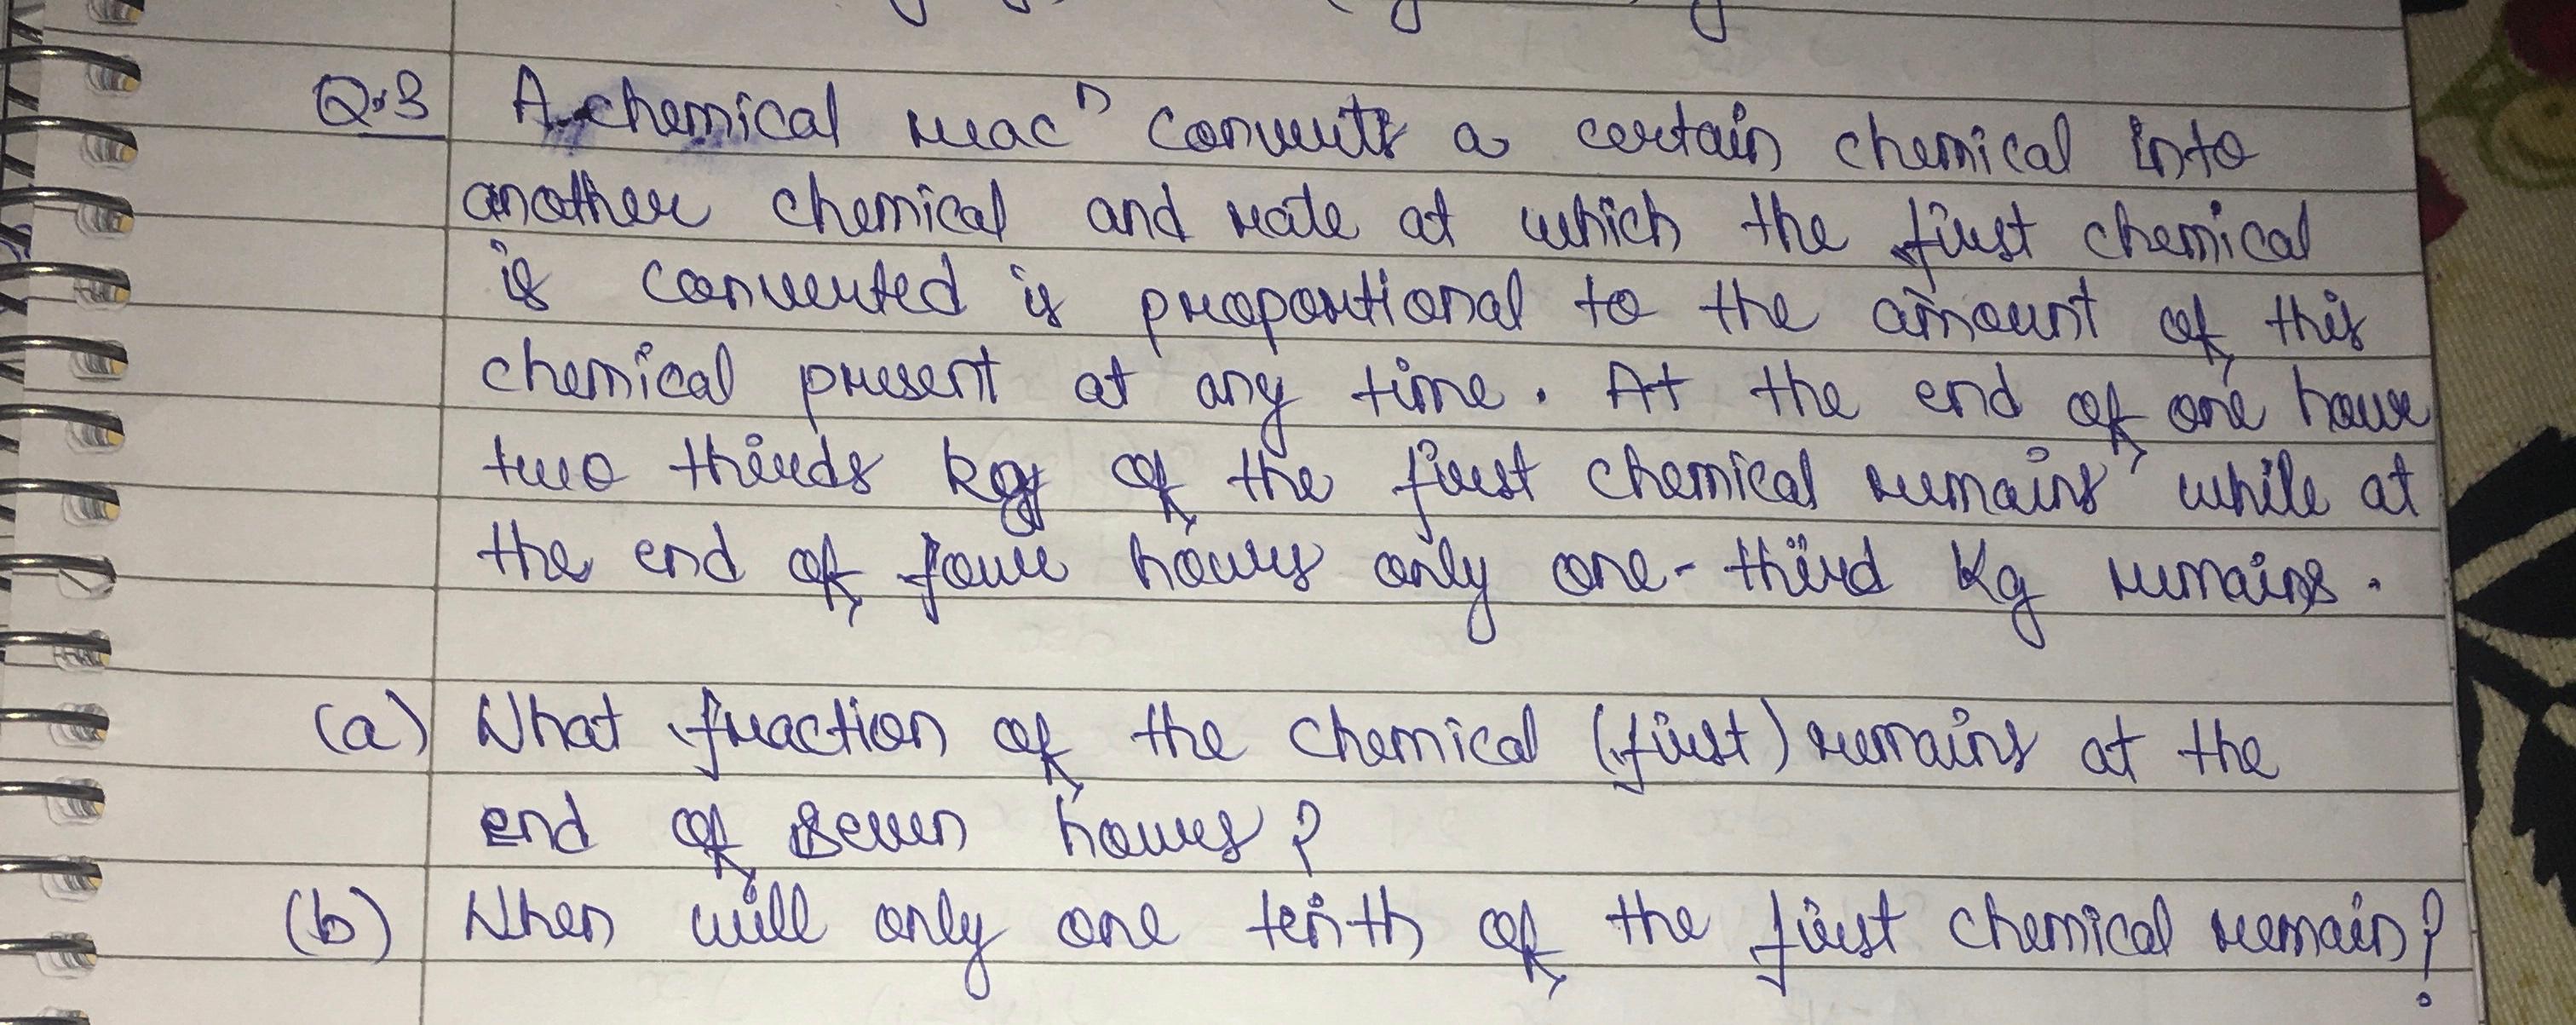 Q.3 A chemical reacⁿ converts a certain chemical into
another chemical and rate at which the first chemical
is converted is proportional to the amount of this
chemical present at any time. At the end of one hour
two thirds kg of the first chemical remains, while at
the end of four hours only one-third kg remains.
(a) What fraction of the chemical (first) remains at the
end of seven hours?
(b) When will only one tenth of the first chemical remain?